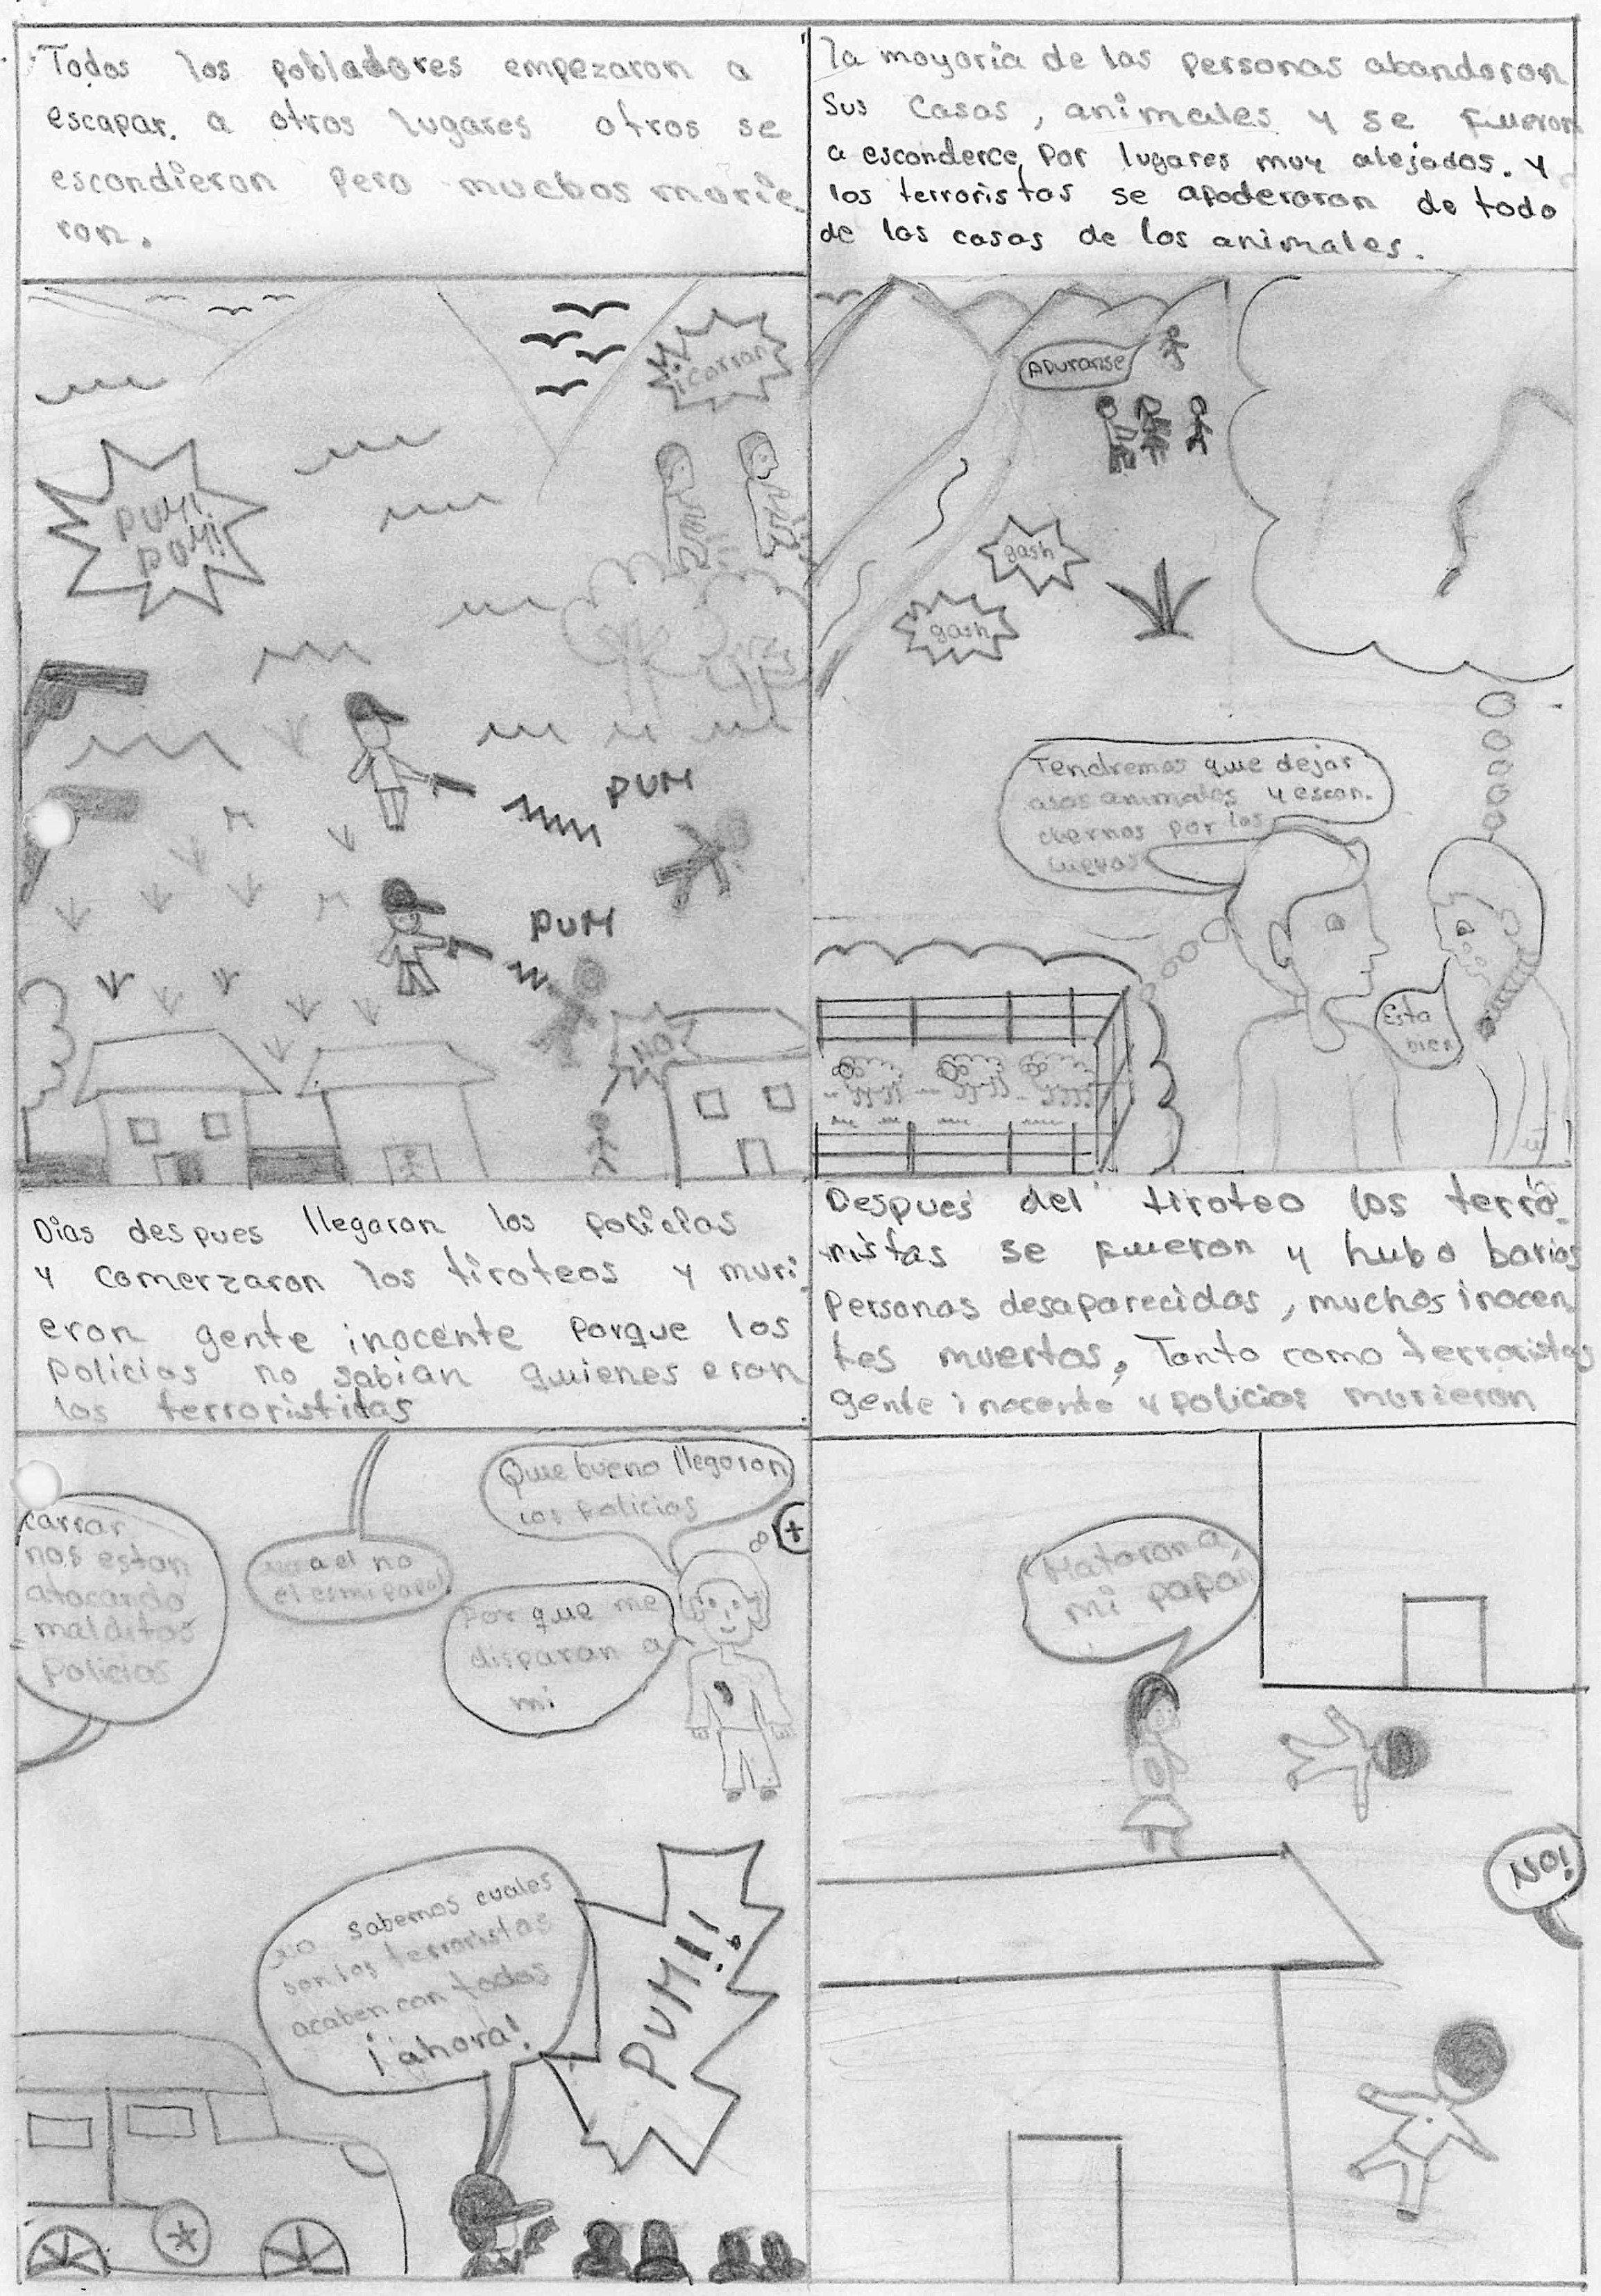 Todos los pobladores empezaron a
escapar. a otros lugares otros se
escondieron pero muchos morie
ron.
¡Corran
PUM!
POM!
PUM
PUM
NO
la mayoria de las personas abandoron
sus casas, animales y se fueron
a esconderce por lugares muy alejados. y
los terroristas se apoderaron de todo
de las casas de los animales.
Apuranse
gash
gash
Tendremos que dejar
asos animales y escon.
dernos por las
cuevas
Esta
bien
Dias despues llegaron los policias
y comerzaron los tiroteos y muri
eron gente inocente porque los
policias no sabian quienes eran
los terroristitas
Que bueno llegaron
los policias
carrar
nos estan
atacando
malditos
policias
a el no
el es mi papa
Por que me
disparan a
mi
no sabemos cuales
son los terroristas
acaben con todos
¡ahora!
PUM!!
Despues del tiroteo los terro-
ristas se fueron y hubo barias
personas desaparecidas, muchos inocen
tes muertos, Tanto como terroristas
gente inocente y policias murieron
Mataron a
mi papa
NO!